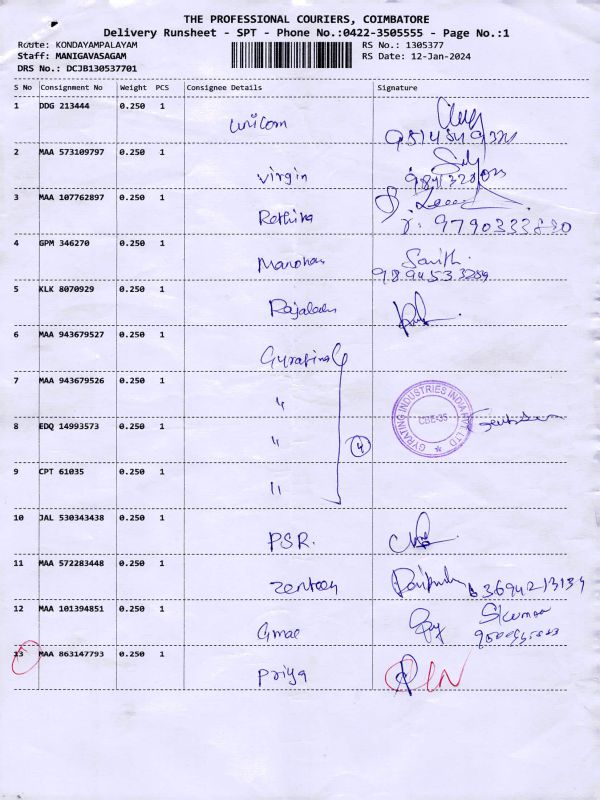 THE PROFESSIONAL COURIERS, COIMBATORE
Delivery Runsheet - SPT - Phone No.:0422-3505555 - Page No.:1
Route: KONDAYAMPALAYAM RS No.: 1305377
Staff: MANIGAVASAGAM RS Date: 12-Jan-2024
DRS No.: DCJB130537701
S No Consignment No Weight PCS Consignee Details Signature
1 DDG 213444 0.250 1
unicorn
2 MAA 573109797 0.250 1
Virgin
3 MAA 107762897 0.250 1
Rethina
9790333880
4 GPM 346270 0.250 1
Manohar
5 KLK 8070929 0.250 1
6 MAA 943679527 0.250 1
Gyrating
7 MAA 943679526 0.250 1
"
GYRATING INDUSTRIES INDIA PVT LTD
CBE-35
8 EDQ 14993573 0.250 1
"
4
9 CPT 61035 0.250 1
"
10 JAL 530343438 0.250 1
PSR.
11 MAA 572283448 0.250 1
12 MAA 101394851 0.250 1
13 MAA 863147793 0.250 1
Priya